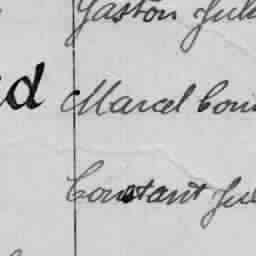 Gaston Jul
d Marcel Con
Constant Jul